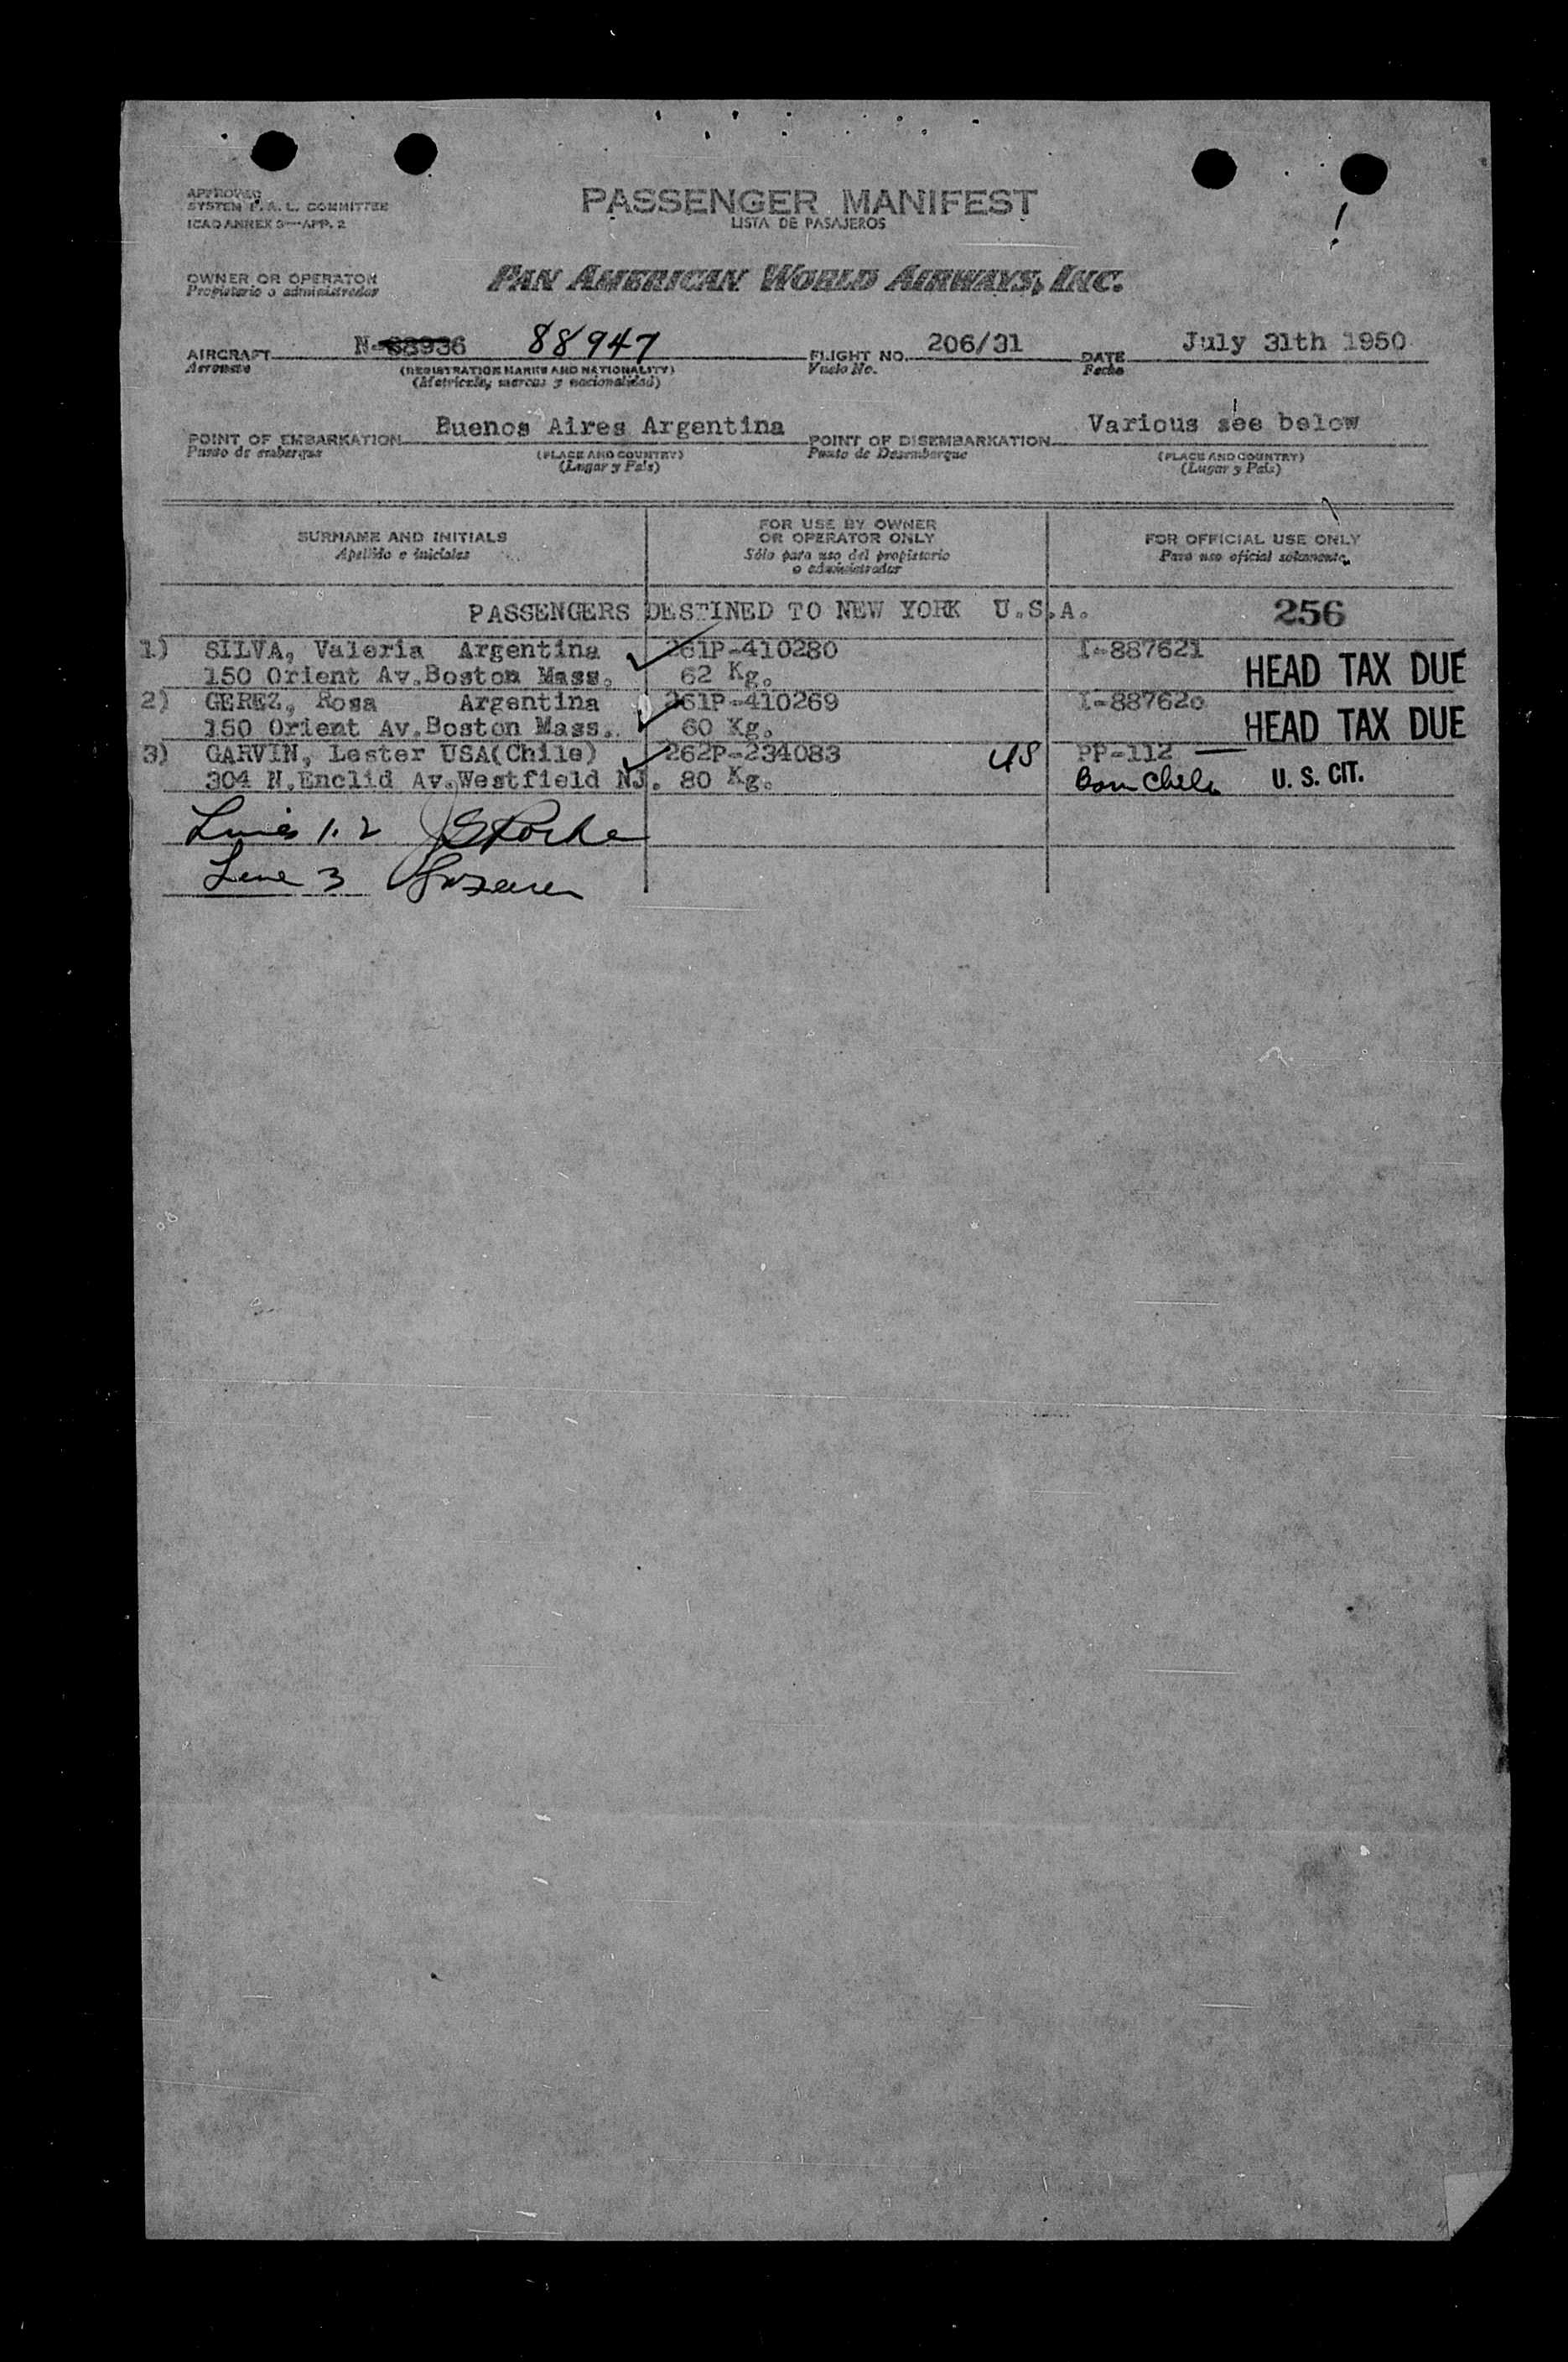 APPROVED
SYSTEM F. A. L. COMMITTEE
ICAO ANNEX 9—APP. 2
PASSENGER MANIFEST
LISTA DE PASAJEROS
OWNER OR OPERATOR
Propietario o administrador
PAN AMERICAN WORLD AIRWAYS, INC.
AIRCRAFT N-88936 88947 FLIGHT NO. 206/31 DATE July 31th 1950
Aeronave (REGISTRATION MARKS AND NATIONALITY) Vuelo No. Fecha
(Matricula, marcas y nacionalidad)
POINT OF EMBARKATION Buenos Aires Argentina POINT OF DISEMBARKATION Various see below
Punto de embarque (PLACE AND COUNTRY) Punto de Desembarque (PLACE AND COUNTRY)
(Lugar y País) (Lugar y País)
SURNAME AND INITIALS FOR USE BY OWNER OR OPERATOR ONLY FOR OFFICIAL USE ONLY
Apellido e iniciales Sólo para uso del propietario o administrador Para uso oficial solamente
PASSENGERS DESTINED TO NEW YORK U.S.A. 256
1) SILVA, Valeria Argentina 261P-410280 I-887621
150 Orient Av.Boston Mass. 62 Kg. HEAD TAX DUE
2) GEREZ, Rosa Argentina 261P-410269 I-887620
150 Orient Av.Boston Mass. 60 Kg. HEAD TAX DUE
3) GARVIN, Lester USA(Chile) 262P-234083 US PP-112 —
304 N.Enclid Av.Westfield NJ. 80 Kg. Born Chile U. S. CIT.
Lines 1.2
Line 3